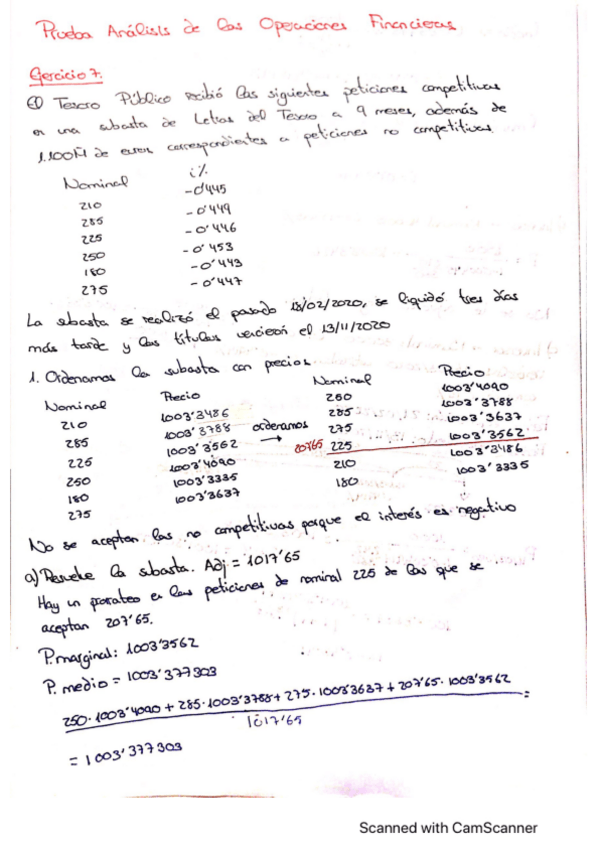 Prueba Análisis de las Operaciones Financieras
Ejercicio 7.
El Tesoro Público recibió las siguientes peticiones competitivas
en una subasta de Letras del Tesoro a 9 meses, además de
1.100M de euros correspondientes a peticiones no competitivas
Nominal i%
210 -0'445
285 -0'449
225 -0'446
250 -0'453
180 -0'443
275 -0'447
La subasta se realizó el pasado 18/02/2020, se liquidó tres días
más tarde y los títulos vencieron el 13/11/2020
1. Ordenamos la subasta con precios.
Nominal Precio Nominal Precio
210 1003'3486 250 1003'4090
285 1003'3788 ordenamos 285 1003'3788
225 1003'3562 → 275 1003'3637
250 1003'4090 207'65 225 1003'3562
180 1003'3335 210 1003'3486
275 1003'3637 180 1003'3335
No se aceptan las no competitivas porque el interés es negativo
a) Resuelve la subasta. Adj = 1017'65
Hay un prorrateo en las peticiones de nominal 225 de las que se
aceptan 207'65.
P. marginal: 1003'3562
P. medio = 1003'377303
250·1003'4090 + 285·1003'3788 + 275·1003'3637 + 207'65·1003'3562 =
1017'65
= 1003'377303
Scanned with CamScanner